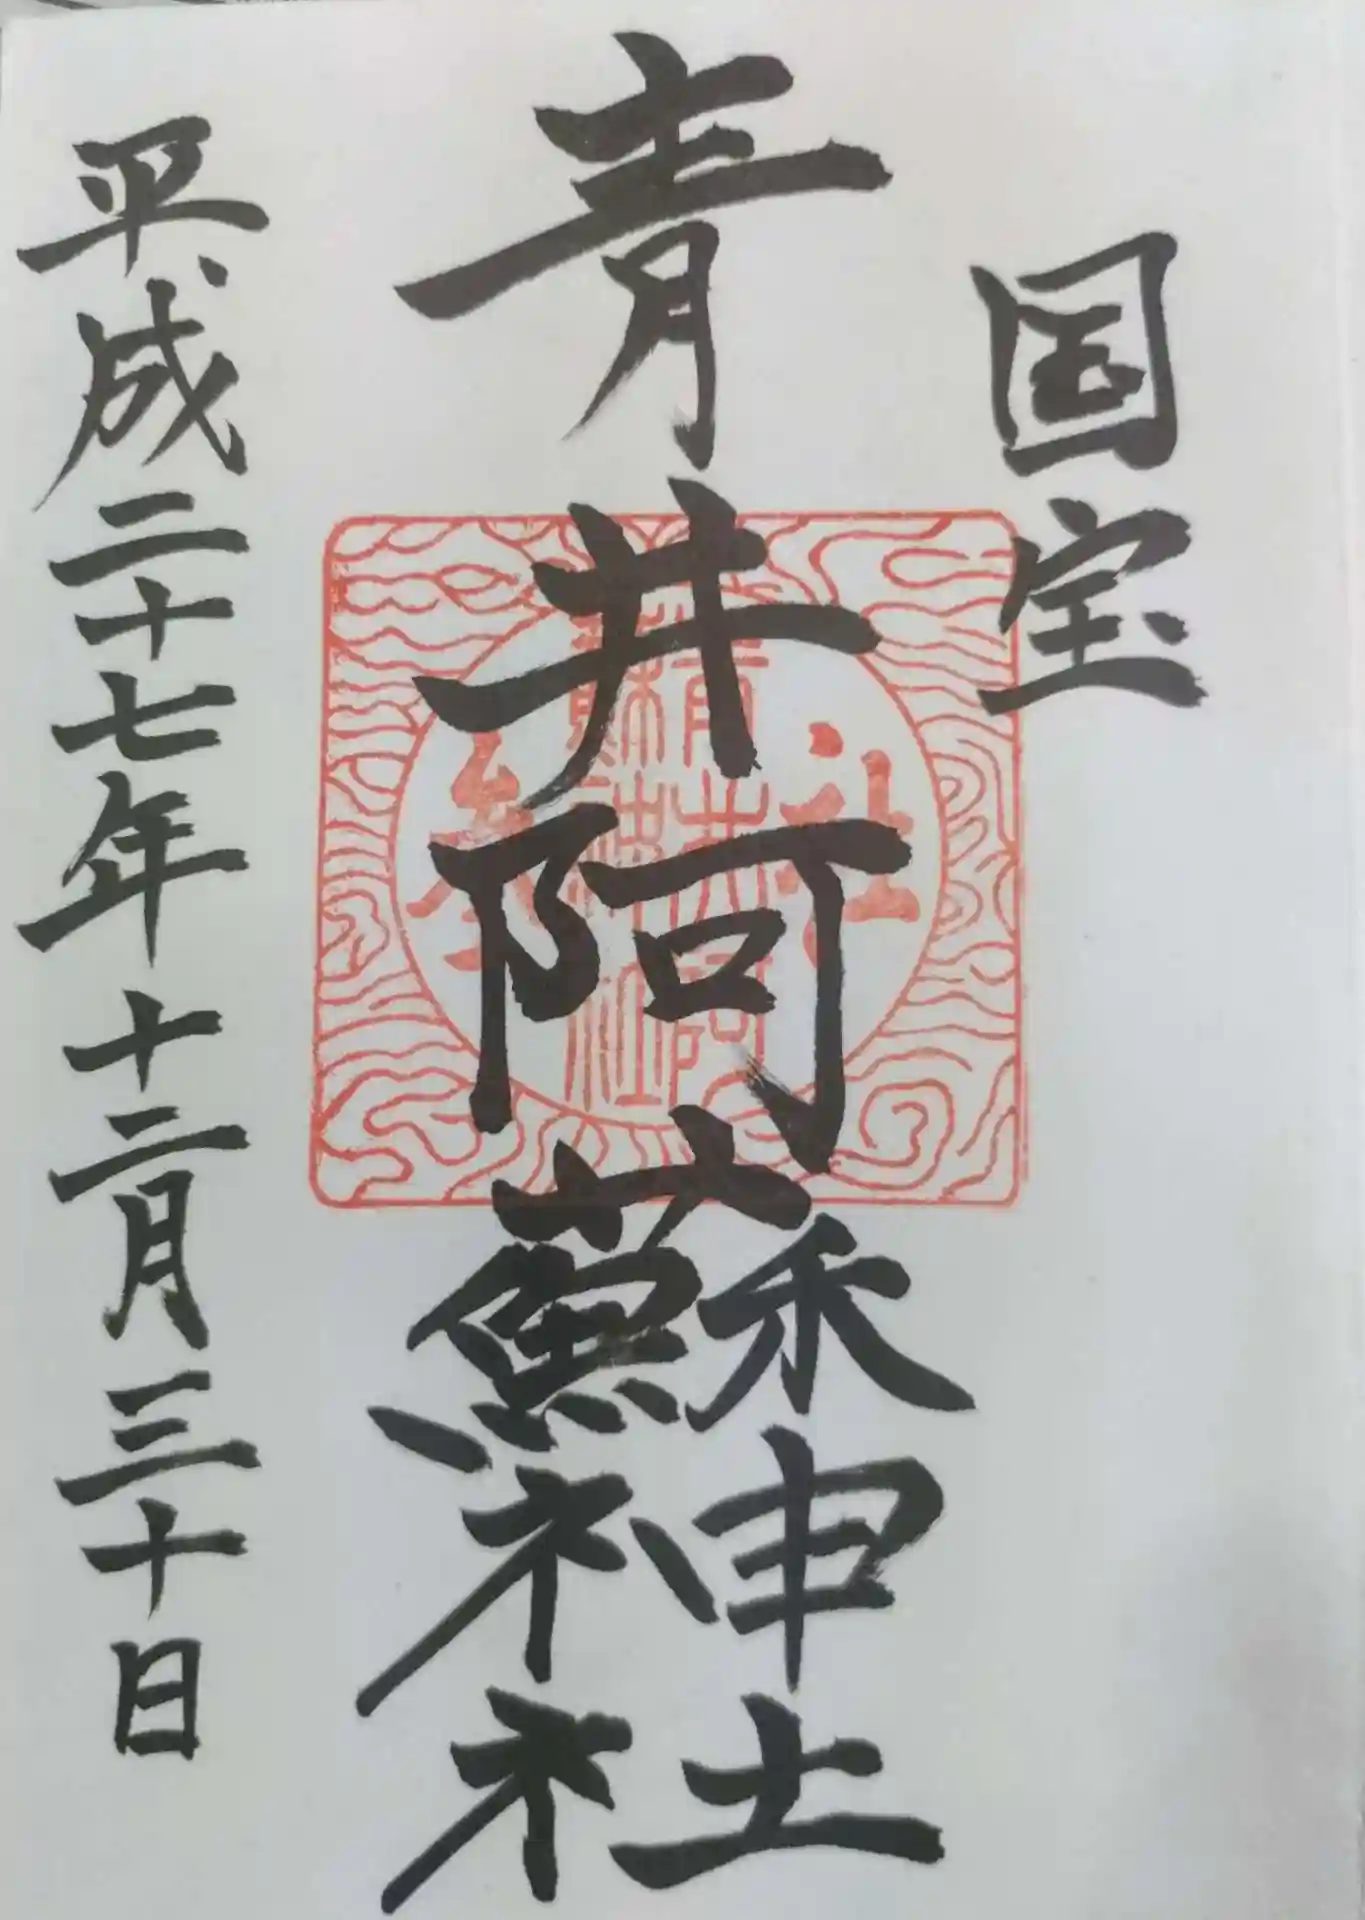 国宝
青井阿蘇神社
平成二十七年十二月三十日
社参
青井阿
蘇神社